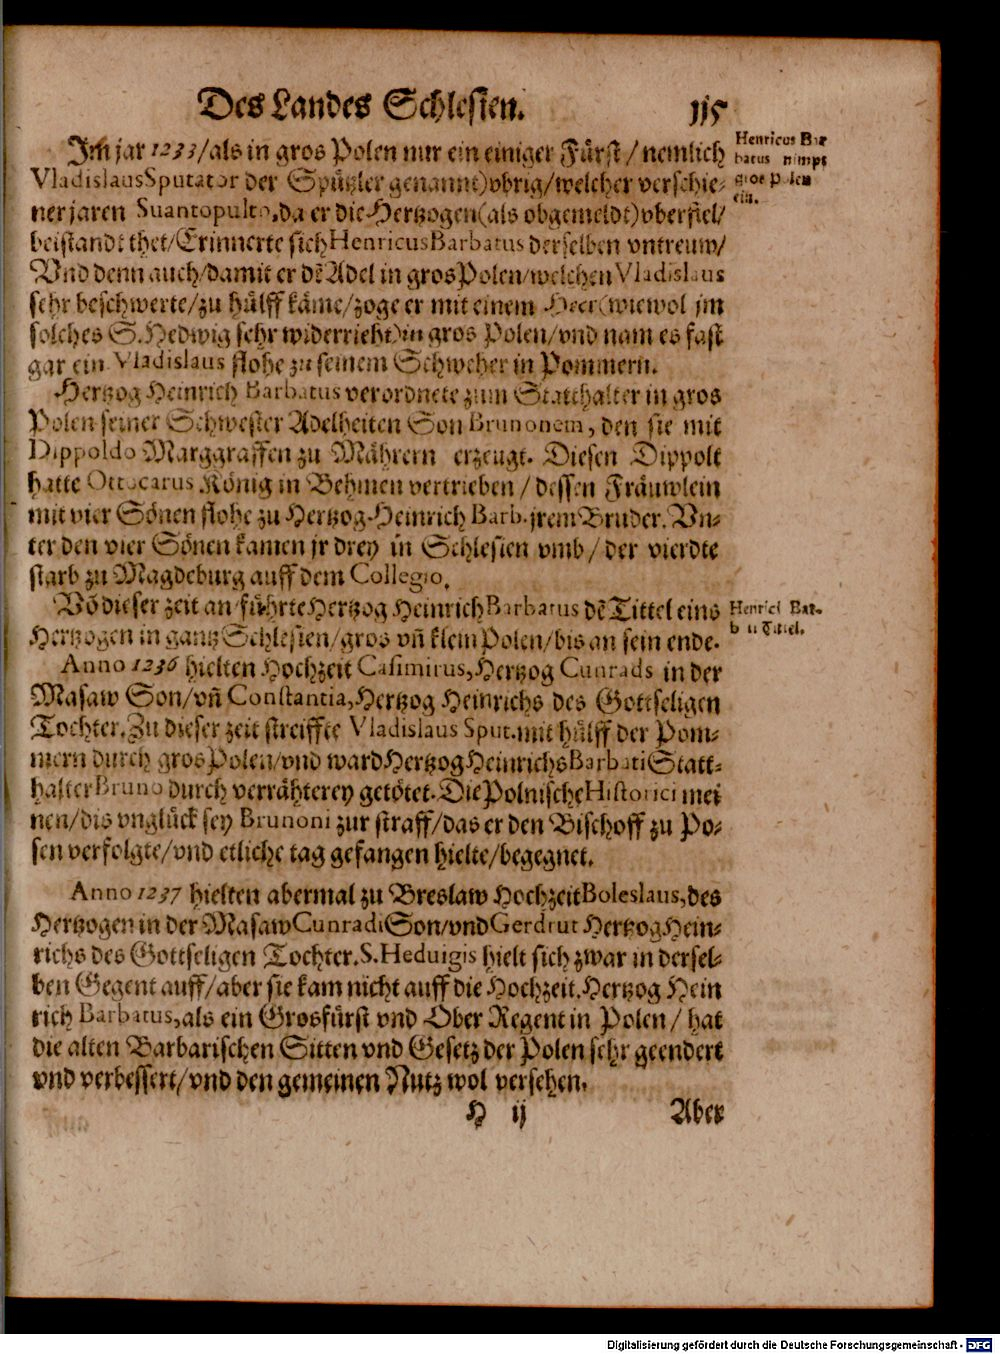 Des Landes Schlesien. 115
Im jar 1233/als in gros Polen nur ein einiger Fürst/nemlich
Vladislaus Sputator der Spützler genannt) vbrig/welcher verschie-
ner jaren Suantopulto, da er die Hertzogen (als obgemeldt) vberfiel/
beistandt thet/Erinnerte sich Henricus Barbatus derselben vntreuw/
Vnd denn auch/damit er dē Adel in gros Polen/welchen Vladislaus
sehr beschwerte/zu hülff käme/zoge er mit einem Heer (wiewol jm
solches S. Hedwig sehr widerrieht) in gros Polen/vnd nam es fast
gar ein. Vladislaus flohe zu seinem Schweher in Pommern.
Henricus Bar
batus nimpt
gros Polen
ein.
Hertzog Heinrich Barbatus verordnete zum Statthalter in gros
Polen seiner Schwester Adelheiten Son Brunonem, den sie mit
Dippoldo Marggraffen zu Mährern erzeugt. Diesen Dippolt
hatte Ottocarus König in Behmen vertrieben/dessen Fräuwlein
mit vier Sönen flohe zu Hertzog Heinrich Barb. jrem Bruder. Vn-
ter den vier Sönen kamen jr drey in Schlesien vmb/der vierdte
starb zu Magdeburg auff dem Collegio.
Vō dieser zeit an führte Hertzog Heinrich Barbatus dē Tittel eins
Hertzogen in gantz Schlesien/gros vn̄ klein Polen/bis an sein ende.
Henrici Bar-
b ti Tittel.
Anno 1236 hielten Hochzeit Casimirus, Hertzog Cunrads in der
Masaw Son/vn̄ Constantia, Hertzog Heinrichs des Gottseligen
Tochter. Zu dieser zeit streiffte Vladislaus Sput. mit hülff der Pom-
mern durch gros Polen/vnd ward Hertzog Heinrichs Barbati Statt-
halter Bruno durch verrähterey getötet. Die Polnische Historici mei
nen/dis vnglück sey Brunoni zur straff/das er den Bischoff zu Po-
sen verfolgte/vnd etliche tag gefangen hielte/begegnet.
Anno 1237 hielten abermal zu Breslaw Hochzeit Boleslaus, des
Hertzogen in der Masaw Cunradi Son/vnd Gerdrut Hertzog Hein-
richs des Gottseligen Tochter. S. Heduigis hielt sich zwar in dersel-
ben Gegent auff/aber sie kam nicht auff die Hochzeit. Hertzog Hein
rich Barbatus, als ein Grosfürst vnd Ober Regent in Polen/hat
die alten Barbarischen Sitten vnd Gesetz der Polen sehr geendert
vnd verbessert/vnd den gemeinen Nutz wol versehen.
H ij Aber
Digitalisierung gefördert durch die Deutsche Forschungsgemeinschaft - DFG